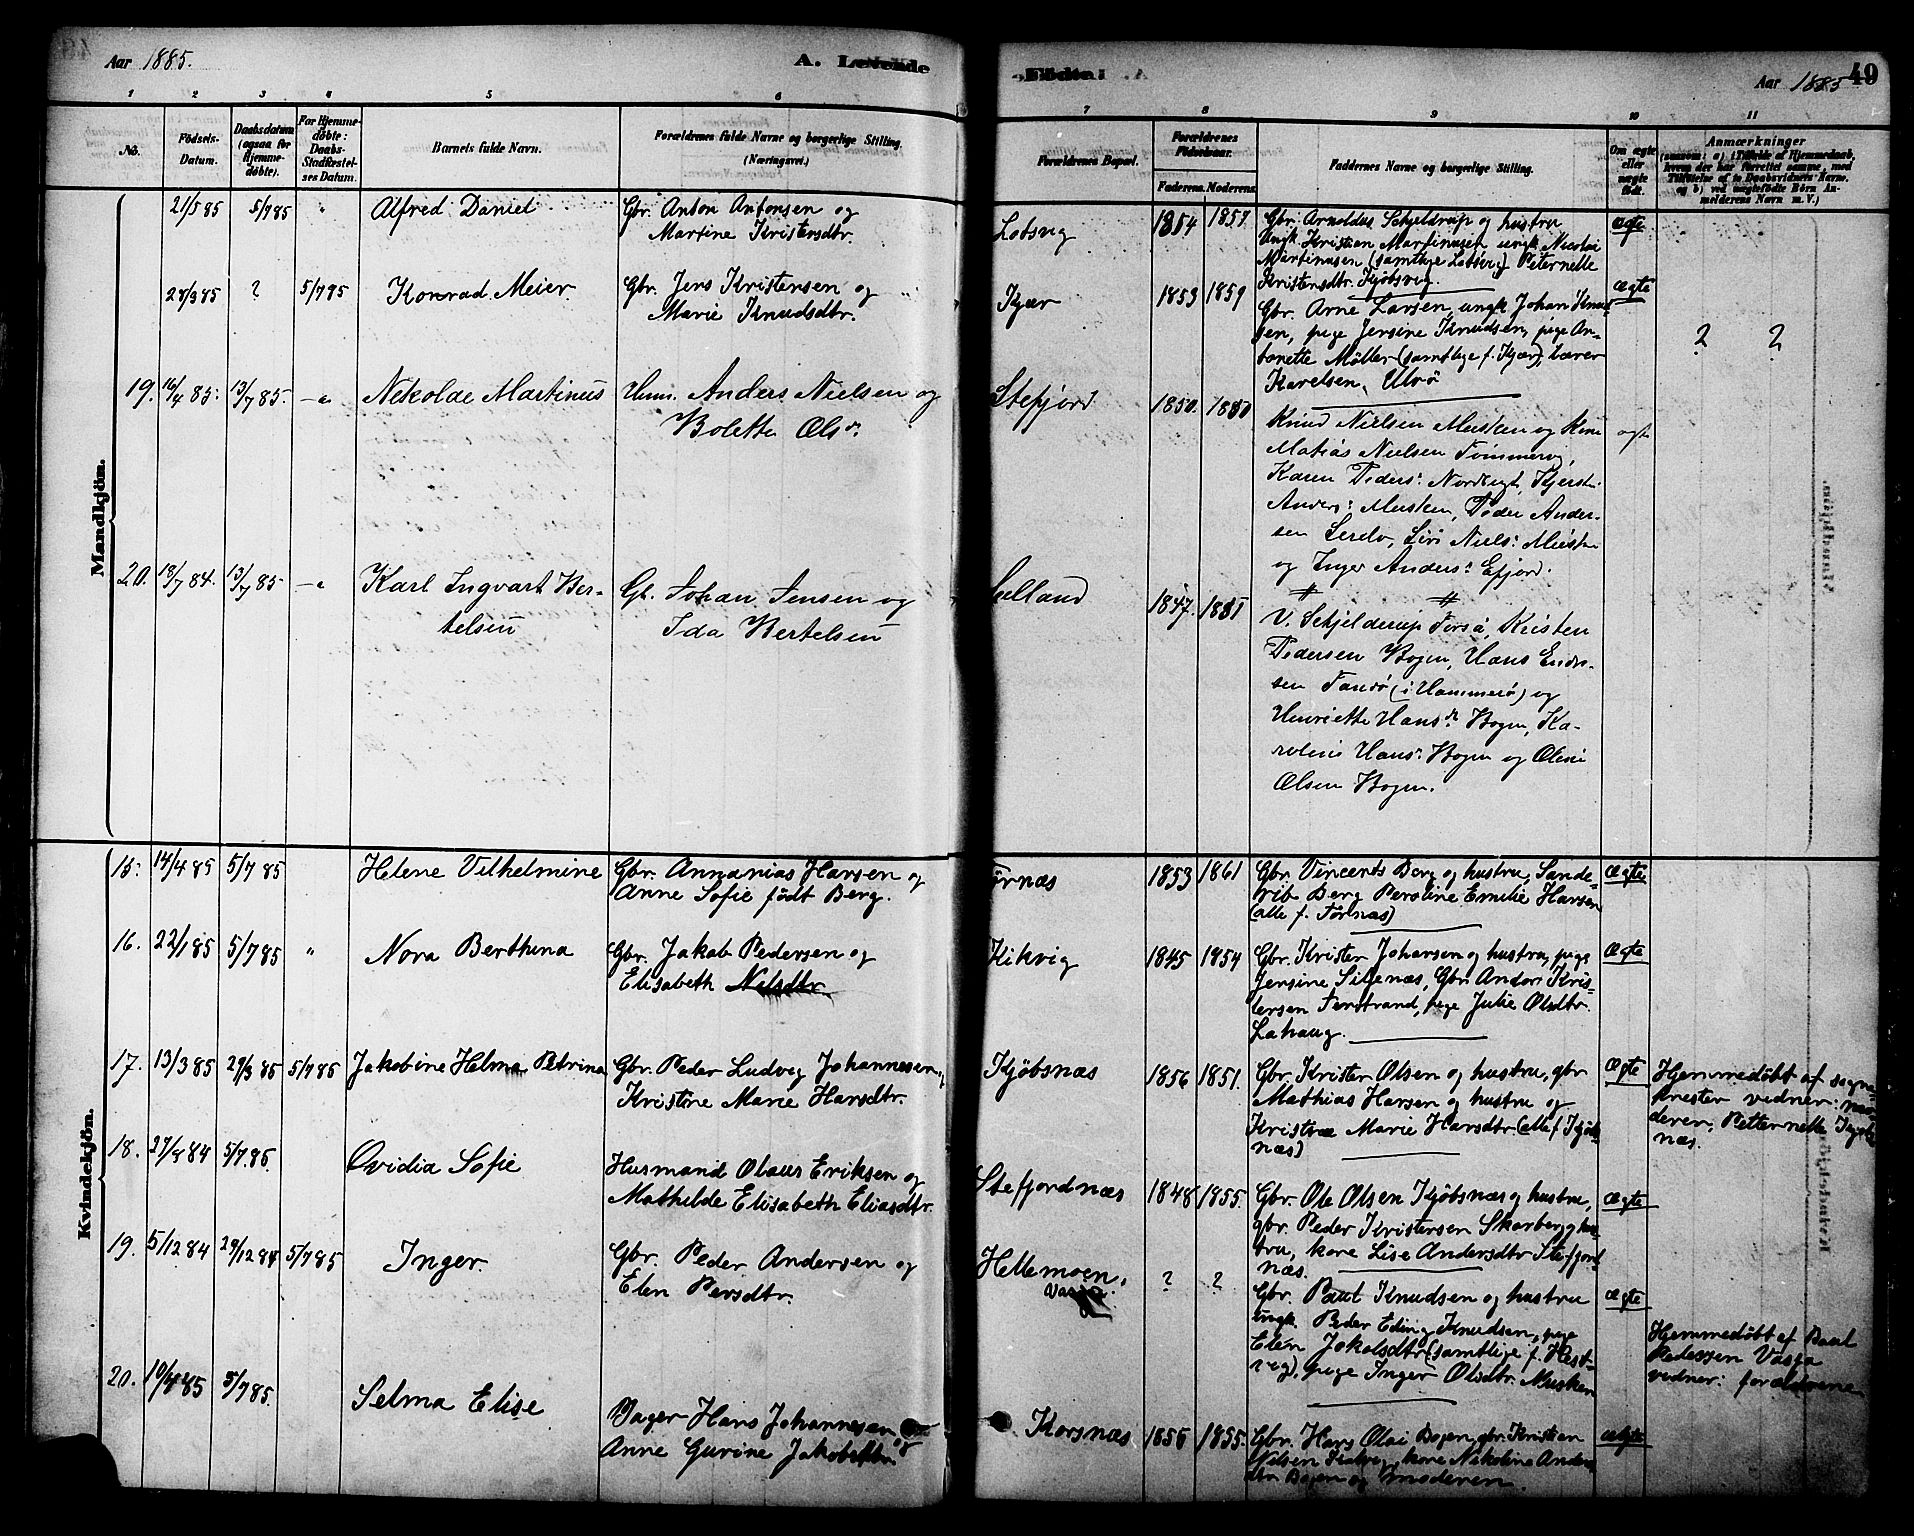 Aar 1885.
A. Levende
Fødte.
49
Aar 1885
1 2 3 4 5 6 7 8 9 10 11
No.
Fødsels-
Datum.
Daabsdatum
(ogsaa for
Hjemme-
døbte).
For Hjemme-
døbte:
Daabs-
Stadfæstel-
ses Datum.
Barnets fulde Navn.
Forældrenes fulde Navne og borgerlige Stilling.
(Næringsvei.)
Forældrenes Bopæl.
Forældrenes
Fødselsaar.
Faderens. Moderens.
Faddernes Navne og borgerlige Stilling.
Om ægte
eller
uægte
født.
Anmærkninger
(saasom: a) i Tilfælde af Hjemmedaab,
hvem der har forrettet samme, med
Tilføielse af to Daabsvidners Navne,
og b) ved uægtefødte Børn An-
melderens Navn m. V.)
Mandkjön.
21/5 85 5/7 85 " Alfred Daniel
Gbr. Anton Antonsen og
Martine Kristensdtr.
1854 1857
Gbr. Arnoldus Schjeldrup og hustru
ungk. Kristian Martinusen ungk. Nicolai
Martinusen (samtlige Lotsvig) Peternelle
Kristensdtr. Kjøbsvig.
Ægte
28/3 85 ? 5/7 85 Konrad Meier.
Gbr. Jens Kristensen og
Marie Knudsdtr.
Kjær
1853 1859
Gbr. Arne Larsen, ungk. Johan Knud-
sen, pige Jensine Knudsen, pige An-
tonette Møller (samtlige f. Kjær), Lærer
Karelsen, Ulvø
Ægte
? ?
19. 16/4 85. 13/7 85. -"- Nekolde Martinus
Huum. Anders Nielsen og
Bolette Olsdr.
Stefjord
1850. 1850
Knud Nielsen Musken og Kone
Matias Nielsen Tømmervg,
Karen Peders: Nordbugt, Kjerst.
Anders: Musken, Peder Ander-
sen Siri Niels: Musken
og Inger Anders: Efjord.
ægte
20. 18/7 84. 13/7 85 -"- Karl Ingvart Ber-
telsen
Gb. Johan Jensen og
Ida Bertelsen
Helland
1847. 1851
V. Schjelderup Forså, Kristen
Pedersen Bogen, Hans
sen Tanrø (i Hammerø) og
Henriette Hansdr. Bogen, Ka-
roline Hansr. Bogen og Oline
Olsen Bogen.
Kvindekjön.
15. 14/4 85 5/7 85 Helene Vilhelmine
Gbr. Annanias Hansen og
Anne Sofie født Berg.
Tørnæs
1853 1861
Gbr. Vincents Berg og hustru, Sande-
vib Berg Peroline Emilie Hansen
(alle f. Tørnæs)
Ægte
16. 22/1 85 5/7 85 " Nora Berthina
Gbr. Jakob Pedersen og
Elisabeth Nilsdtr.
Kikvig
1845 1854
Gbr. Kristen Johansen og hustru, pige
Jensine Siljenæs, Gbr. Andor Kris-
tensen Forstrand, pige Julie Olsdtr.
Lahaug.
Ægte
17. 13/3 85 29/3 85 5/7 85 Jakobine Helma Petrina
Gbr. Peder Ludvig Johannesen og
Kristine Marie Hansdtr.
Kjøbsnæs
1856 1851.
Gbr. Kristen Olsen og hustru, gbr
Mathias Hansen og hustru og
Kristine Marie Hansdtr. (alle f. Kjøb-
næs)
Ægte
Hjemmedøbt af sogne-
prester vidner: mo-
deren, Petternelle Kjøbs-
næs.
18. 27/8 84 5/7 85. Ovidia Sofie
Husmand Olaus Eriksen og
Mathilde Elisabeth Eliasdtr.
Stefjordnæs
1848 1855.
Gbr. Ole Olsen Kjøbsnæs og hustru,
gbr. Peder Kristensen Skarberg og hus-
tru, kone Lise Andersdtr. Stefjord-
næs.
Ægte
19. 5/12 84 29/12 84 5/7 85 Inger.
Gbr. Peder Andersen og
Elen Persdtr.
Hellemoen,
? ?
Gbr. Paul Knudsen og hustru
ungk. Peder Eding Knudsen, pige
Elen Jakobsdtr. (samtlige f. Hest-
neg), pige Inger Olsdtr. Musken
Ægte
Hjemmedøbt af Paul
Pedersen Vasja
vidner: forældrene
20. 19/4 85 5/7 85. Selma Elise
Bager Hans Johannesen og
Anne Gurine Jakobsdtr.
Korsnæs
1856 1855.
Gbr. Hans Olai Bogen, gbr. Kristian
Nilsen kone Nikoline Anders-
dtr. Bogen og moderen.
Ægte